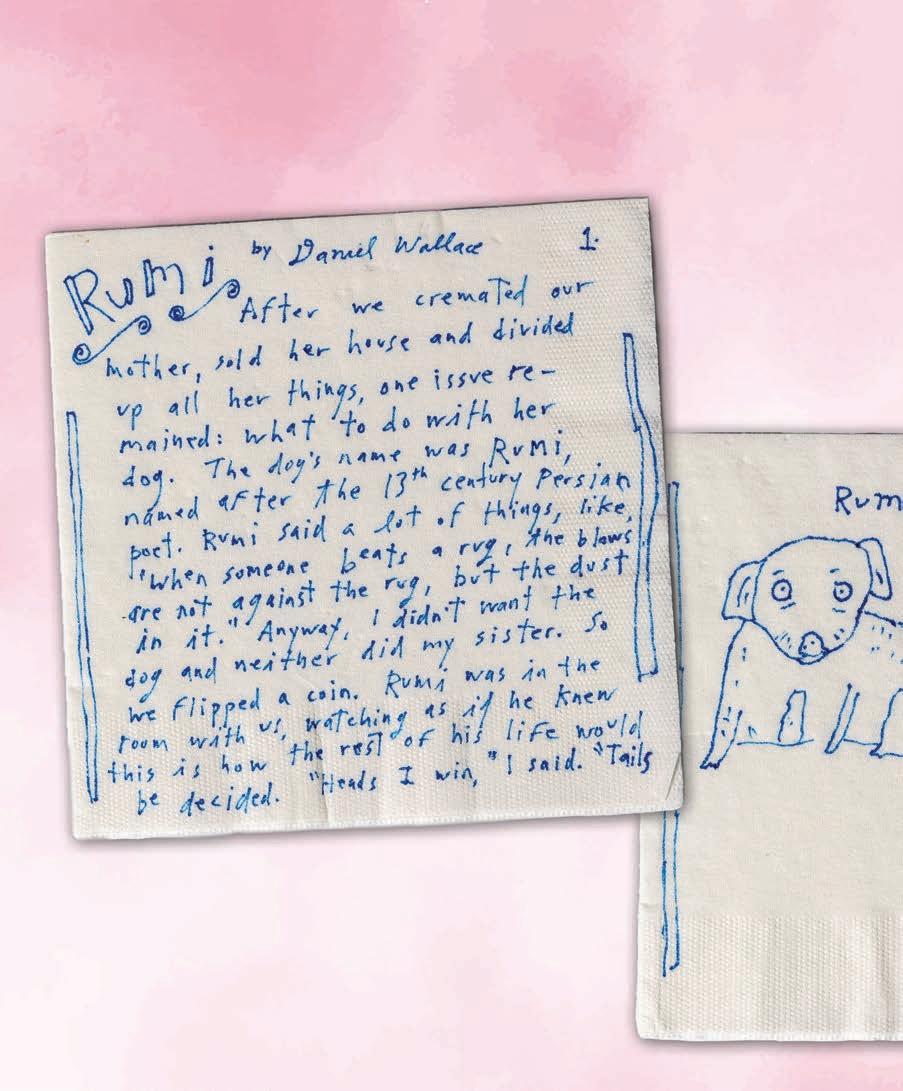 Rumi by Daniel Wallace 1.
After we cremated our
mother, sold her house and divided
up all her things, one issue re-
mained: what to do with her
dog. The dog's name was Rumi,
named after the 13th century Persian
poet. Rumi said a lot of things, like,
"When someone beats a rug, the blows
are not against the rug, but the dust
in it." Anyway, I didn't want the
dog and neither did my sister. So
we flipped a coin. Rumi was in the
room with us, watching as if he knew
this is how the rest of his life would
be decided. "Heads I win," I said. "Tails
Rum